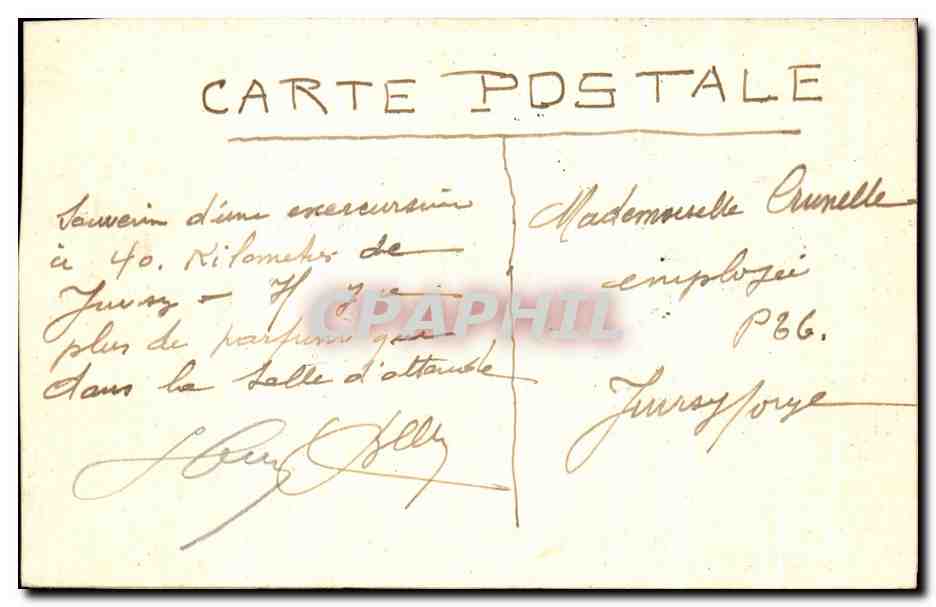 CARTE POSTALE
Souvenir d'une exescursion
à 40. Kilometres de
Juvisy - Il y a
plus de parfum que
dans la salle d'attente
Mademoiselle Crunelle
employée
P
Juvisy s/orge
CPAPHIL